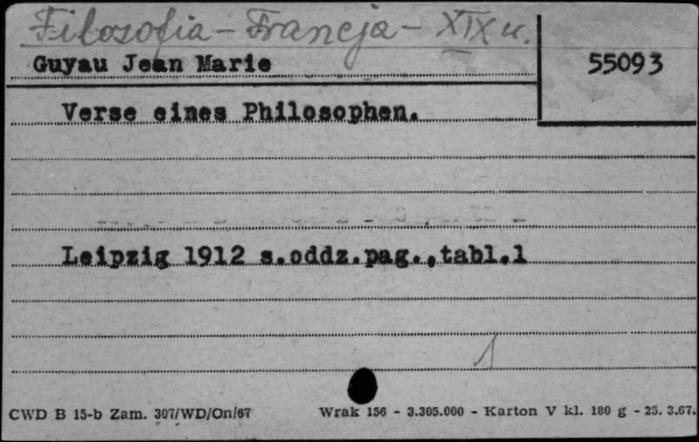 Filozofia - Francja - XIX w.
Guyau Jean Marie
55093
Verse eines Philosophen.
Leipzig 1912 s.oddz.pag.,tabl.1
1
CWD B 15-b Zam. 307/WD/On/67 Wrak 156 - 3.305.000 - Karton V kl. 180 g - 25. 3.67.